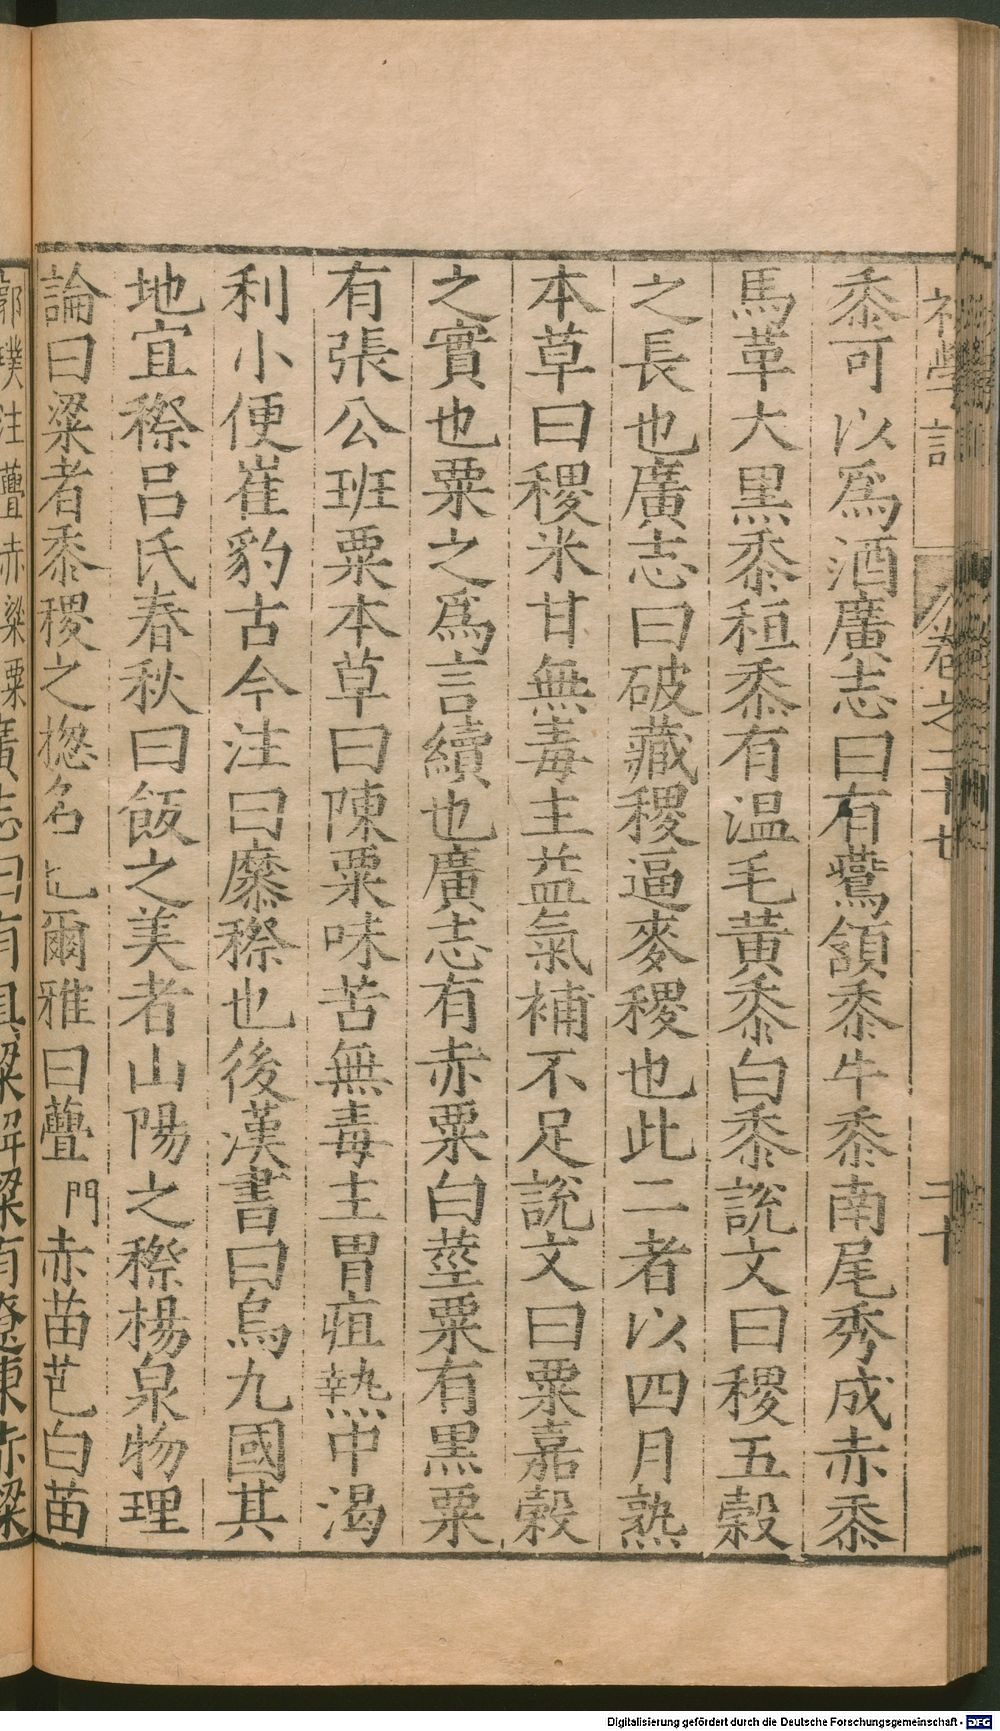 初學記 卷之二十七 二十
黍可以爲酒廣志曰有鷰頷黍牛黍南尾秀成赤黍
馬革大黑黍秬黍有温毛黄黍白黍說文曰稷五穀
之長也廣志曰破藏稷逼麥稷也此二者以四月熟
本草曰稷米甘無毒主益氣補不足說文曰粟嘉穀
之實也粟之爲言續也廣志有赤粟白莖粟有黑粟
有張公班粟本草曰陳粟味苦無毒主胃疽熱中渴
利小便崔豹古今注曰穈穄也後漢書曰烏九國其
地宜穄吕氏春秋曰飯之美者山陽之穄楊泉物理
論曰粱者黍稷之揔名也爾雅曰虋門赤苗芑白苗
郭璞注虋赤粱粟廣志曰有具粱解粱有遼東赤粱
Digitalisierung gefördert durch die Deutsche Forschungsgemeinschaft - DFG